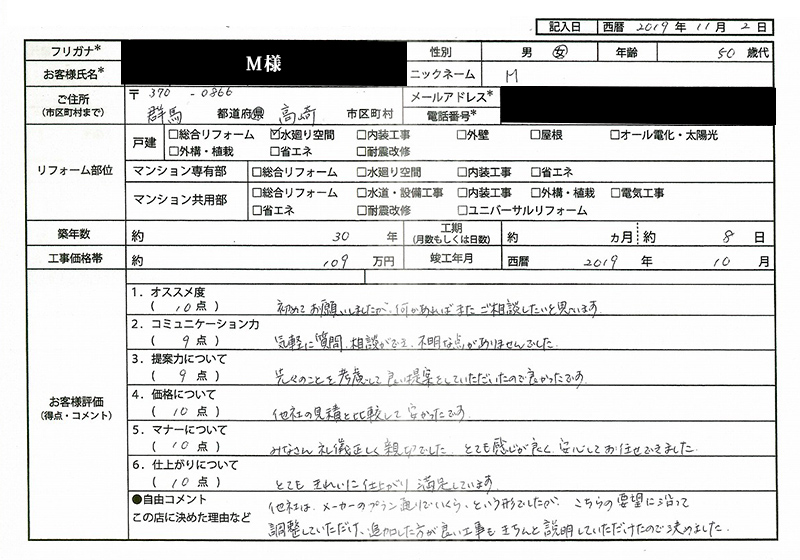 記入日 西暦 2019 年 11 月 2 日
フリガナ*
お客様氏名*
M様
性別 男 女 年齢 50 歳代
ニックネーム M
ご住所
(市区町村まで)
〒 370 - 0866
群馬 都道府県 高崎 市区町村
メールアドレス*
電話番号*
リフォーム部位
戸建 □総合リフォーム ☑水廻り空間 □内装工事 □外壁 □屋根 □オール電化・太陽光
□外構・植栽 □省エネ □耐震改修
マンション専有部 □総合リフォーム □水廻り空間 □内装工事 □省エネ
マンション共用部 □総合リフォーム □水道・設備工事 □内装工事 □外構・植栽 □電気工事
□省エネ □耐震改修 □ユニバーサルリフォーム
築年数 約 30 年 工期
(月数もしくは日数) 約 カ月 約 8 日
工事価格帯 約 109 万円 竣工年月 西暦 2019 年 10 月
お客様評価
(得点・コメント)
1. オススメ度
( 10 点 ) 初めてお願いしましたが、何かあればまたご相談したいと思います。
2. コミュニケーション力
( 9 点 ) 気軽に質問、相談ができ、不明な点がありませんでした。
3. 提案力について
( 9 点 ) 先々のことを考慮して良い提案をしていただいたので良かったです。
4. 価格について
( 10 点 ) 他社の見積と比較して安かったです。
5. マナーについて
( 10 点 ) みなさん礼儀正しく親切でした。とても感じが良く、安心してお任せできました。
6. 仕上がりについて
( 10 点 ) とてもきれいに仕上がり満足しています。
●自由コメント
この店に決めた理由など
他社は、メーカーのプラン通りでいくら、という形でしたが、こちらの要望に沿って
調整していただけ、追加した方が良い工事もきちんと説明していただけたので決めました。